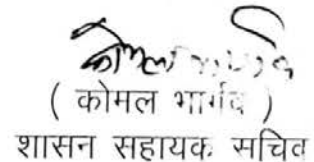 ( कोमल भार्गव )
शासन सहायक सचिव